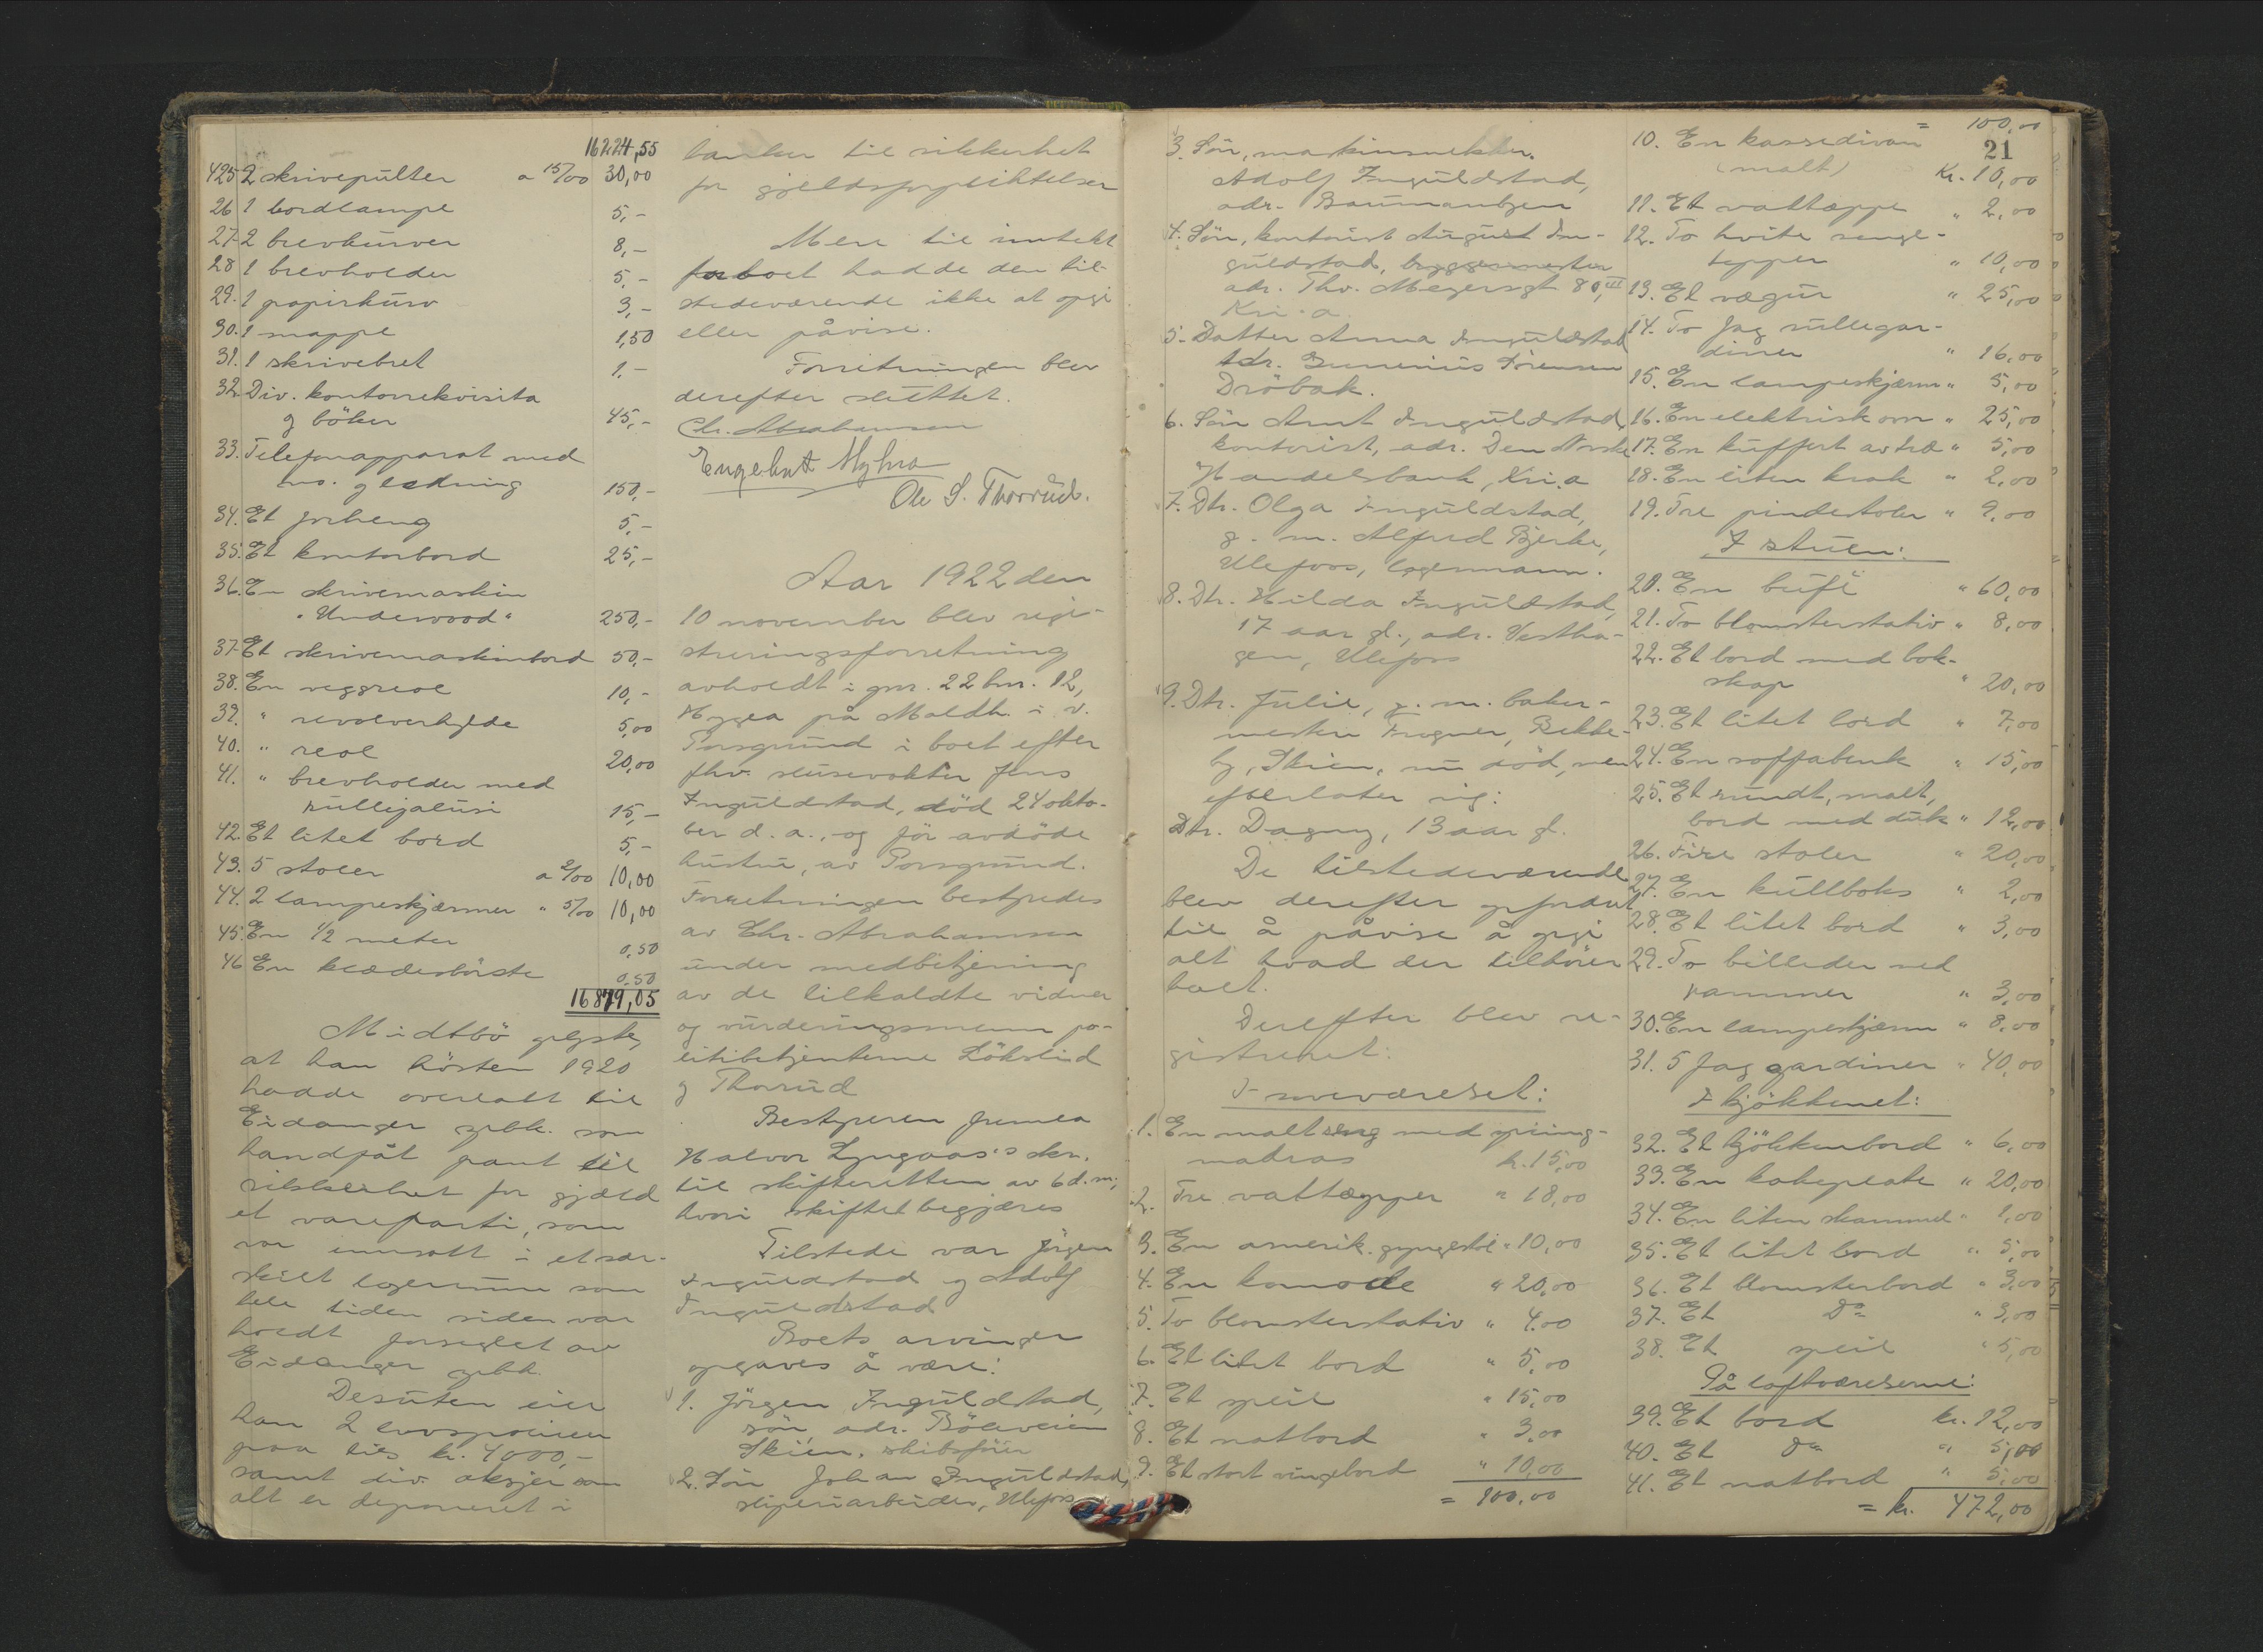 16224,55
425 2 skrivepulter a 15/00 30,00
26 1 bordlampe 5,-
27 2 brevkurver 8,-
28 1 brevholder 5,-
29. 1 papirkurv 3,-
30. 1 mappe 1,50
31. 1 skrivebret 1,-
32 Div. kontorrekvisita
og böker 45,-
33. Telefonapparat med
no. g ledning 150,-
34. Et forheng 5,-
35. Et kontorbord 25,-
36. En skrivemaskin
"Underwood" 250,-
37 Et skrivemaskinbord 50,-
38. En veggreol 10,-
39. " revolverhylde 5,00
40. " reol 20,00
41. " brevholder med
rullejalusi 15,-
42. Et litet bord 5,-
43. 5 stoler a 2/00 10,00
44. 2 lampeskjærmer " 5/00 10,00
45. En 1/2 meter 0,50
46 En klædesbörste 0,50
16879,05
Midtbö oplyste,
at han hösten 1920
hadde overlatt til
Eidanger spbk. som
handfåt pant til
sikkerhet for gjæld
et vareparti, som
var innsatt i et sær-
skilt lagerrum som
hele tiden siden var
holdt forseglet av
Eidanger spbk.
Desuten eier
han 2 livspoliser
paa tils kr. 4000,-
samt div. aksjer som
alt er deponeret i
banker til sikkerhet
for gjeldsforpliktelser
Mere til inntekt
for boet hadde den til-
stedeværende ikke at opgi
eller påvise.
Forretningen blev
derefter sluttet.
Chr. Abrahamsen
Engebret Myhra
Ole S. Thorrud.
Aar 1922 den
10 november blev regi-
streringsforretning
avholdt i gnr. 22 bnr. 12,
Hygea på Moldh. i v.
Porsgrund i boet efter
fhv. slusevokter Jens
Inguldstad, död 24 okto-
ber d. a., og för avdöde
hustru, av Porsgrund.
Forretningen bestyredes
av Chr. Abrahamsen
under medbetjening
av de tilkaldte vidner
og vurderingsmenn po-
litibetjenterne Lökslid
g Thorrud
Bestyreren fremla
Halvor Lyngaas's skr.
til skifteretten av 6 d.m.,
hvori skiftet begjæres
Tilstede var Jörgen
Inguldstad g Adolf
Inguldstad
Boets arvinger
opgaves å være:
1. Jörgen Inguldstad,
sön, adr. Böleveien
Skien, skibsförer
2. Sön Johan Inguldstad,
sliperiarbeider, Ulefoss
3. Sön, maskinmester
Adolf Inguldstad,
adr. Baumanbgen
4. Sön, kontorist August In-
guldstad, byggmester
adr. Thv. Meyersgt 80, III
Kri.a.
5. Datter Anna Inguldstad
adr. Gunerius Sörensen
Dröbak.
6. Sön Arnt Inguldstad,
kontorist, adr. Den Norske
Handelsbank, Kri.a
7. Dtr. Olga Inguldstad,
g. m. Alfred Bjerke,
Ulefoss, lagermann.
8. Dtr. Hilda Inguldstad,
17 aar gl., adr. Vestha-
gen, Ulefoss
9. Dtr. Julie, g. m. baker-
mester Frogner, Bekke-
by, Skien, nu död, men
efterlater sig:
Dtr. Dagny, 13 aar gl.
De tilstedeværende
blev derefter opfordret
til å påvise å opgi
alt hvad der tilhörer
boet.
Derefter blev re-
gistreret:
I soveværelset:
1. En malt seng med spring-
madras kr. 15,00
2. Tre vattæpper " 18,00
3. En amerik. gyngestol " 10,00
4. En komode " 20,00
5. To blomsterstativ " 4.00
6. Et litet bord " 5,00
7. Et speil " 15,00
8. Et natbord " 3,00
9. Et stort vingebord " 10,00
= 100,00
= 100,00
21
10. En kassedivan
(malt) Kr. 10,00
11. Et vattæppe " 2,00
12. To hvite senge-
tepper " 10,00
13. Et vægur " 25,00
14. To fag rullegar-
diner " 16,00
15. En lampeskjærm " 5,00
16. En elektrisk ovn " 25,00
17. En kuffert av træ " 5,00
18. En liten krak " 2,00
19. Tre pindestoler " 9,00
I stuen:
20. En bufé " 60,00
21. To blomsterstativ " 8,00
22. Et bord med bok-
skap " 20,00
23. Et litet bord " 7,00
24. En soffabenk " 15,00
25. Et rundt, malt,
bord med duk " 12,00
26. Fire stoler " 20,00
27. En kullboks " 2,00
28. Et litet bord " 3,00
29. To billeder med
rammer " 3,00
30. En lampeskjærm " 8,00
31. 5 fag gardiner " 40,00
I kjökkenet:
32. Et kjökkenbord " 6,00
33. En kokeplate " 20,00
34. En liten skammel " 1,00
35. Et litet bord " 5,00
36. Et blomsterbord " 3,00
37. Et Do " 3,00
38. Et speil " 5,00
På loftværelserne:
39. Et bord kr. 12,00
40. Et Do " 5,00
41. Et natbord " 5,00
= kr. 472,00